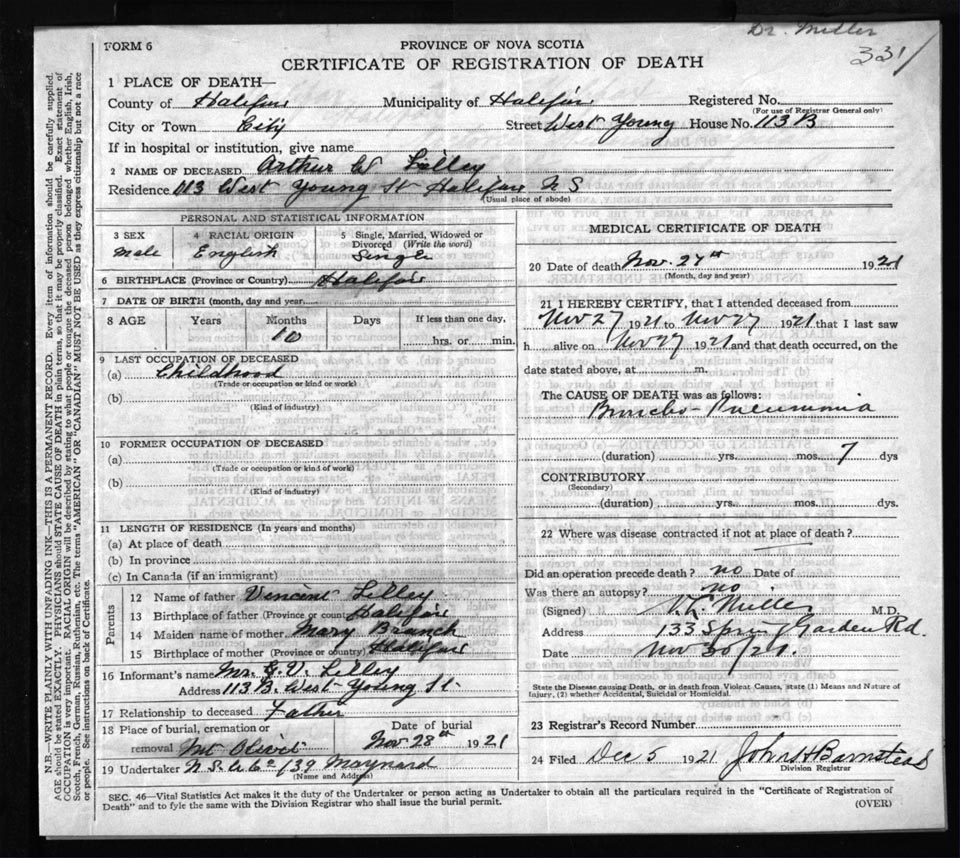 Dr. Miller
331
FORM 6
PROVINCE OF NOVA SCOTIA
CERTIFICATE OF REGISTRATION OF DEATH
1 PLACE OF DEATH—
County of Halifax Municipality of Halifax Registered No.
(For use of Registrar General only)
City or Town City Street West Young House No. 113 B
If in hospital or institution, give name
2 NAME OF DECEASED Arthur W Lilley
Residence 113 West Young St Halifax N S
(Usual place of abode)
PERSONAL AND STATISTICAL INFORMATION
3 SEX 4 RACIAL ORIGIN 5 Single, Married, Widowed or Divorced (Write the word)
male English Single
6 BIRTHPLACE (Province or Country) Halifax
7 DATE OF BIRTH (month, day and year)
8 AGE Years Months Days If less than one day,
10 hrs. or min.
9 LAST OCCUPATION OF DECEASED
(a) Childhood
(Trade or occupation or kind or work)
(b)
(Kind of industry)
10 FORMER OCCUPATION OF DECEASED
(a)
(Trade or occupation or kind of work)
(b)
(Kind of industry)
11 LENGTH OF RESIDENCE (In years and months)
(a) At place of death
(b) In province
(c) In Canada (if an immigrant)
Parents
12 Name of father Vincent Lilley
13 Birthplace of father (Province or country) Halifax
14 Maiden name of mother Mary Branch
15 Birthplace of mother (Province or country) Halifax
16 Informant's name Mr. G. V. Lilley
Address 113 B. West Young St.
17 Relationship to deceased Father
18 Place of burial, cremation or removal Mt Olivet
Date of burial Nov 28th 1921
19 Undertaker N. S. U Co 139 Maynard
(Name and Address)
MEDICAL CERTIFICATE OF DEATH
20 Date of death Nov. 27th 1921
(Month, day and year)
21 I HEREBY CERTIFY, that I attended deceased from
Nov 27 1921 to Nov 27 1921 that I last saw
h alive on Nov 27 1921 and that death occurred, on the
date stated above, at m.
The CAUSE OF DEATH was as follows:
Broncho-Pneumonia
(duration) yrs. mos. 7 dys
CONTRIBUTORY
(Secondary)
(duration) yrs. mos. dys.
22 Where was disease contracted if not at place of death?
Did an operation precede death? no Date of
Was there an autopsy? no
(Signed) V. L. Miller M.D.
Address 133 Spring Garden Rd.
Date Nov 30/21.
State the Disease causing Death, or in death from Violent Causes, state (1) Means and Nature of
Injury, (2) whether Accidental, Suicidal or Homicidal.
23 Registrar's Record Number
24 Filed Dec 5 1921 John H Barnstead
Division Registrar
SEC. 46—Vital Statistics Act makes it the duty of the Undertaker or person acting as Undertaker to obtain all the particulars required in the "Certificate of Registration of
Death" and to fyle the same with the Division Registrar who shall issue the burial permit.
(OVER)
N.B.—WRITE PLAINLY WITH UNFADING INK—THIS IS A PERMANENT RECORD. Every item of information should be carefully supplied.
AGE should be stated EXACTLY. PHYSICIANS should STATE CAUSE OF DEATH in plain terms, so that it may be properly classified. Exact statement of
OCCUPATION is very important. RACIAL ORIGIN will be described by stating to what people or tongue the deceased person belonged whether English, Irish,
Scotch, French, German, Russian, Ruthenian, etc. The terms "AMERICAN" OR "CANADIAN" MUST NOT BE USED as they express citizenship but not a race
or people. See instructions on back of Certificate.